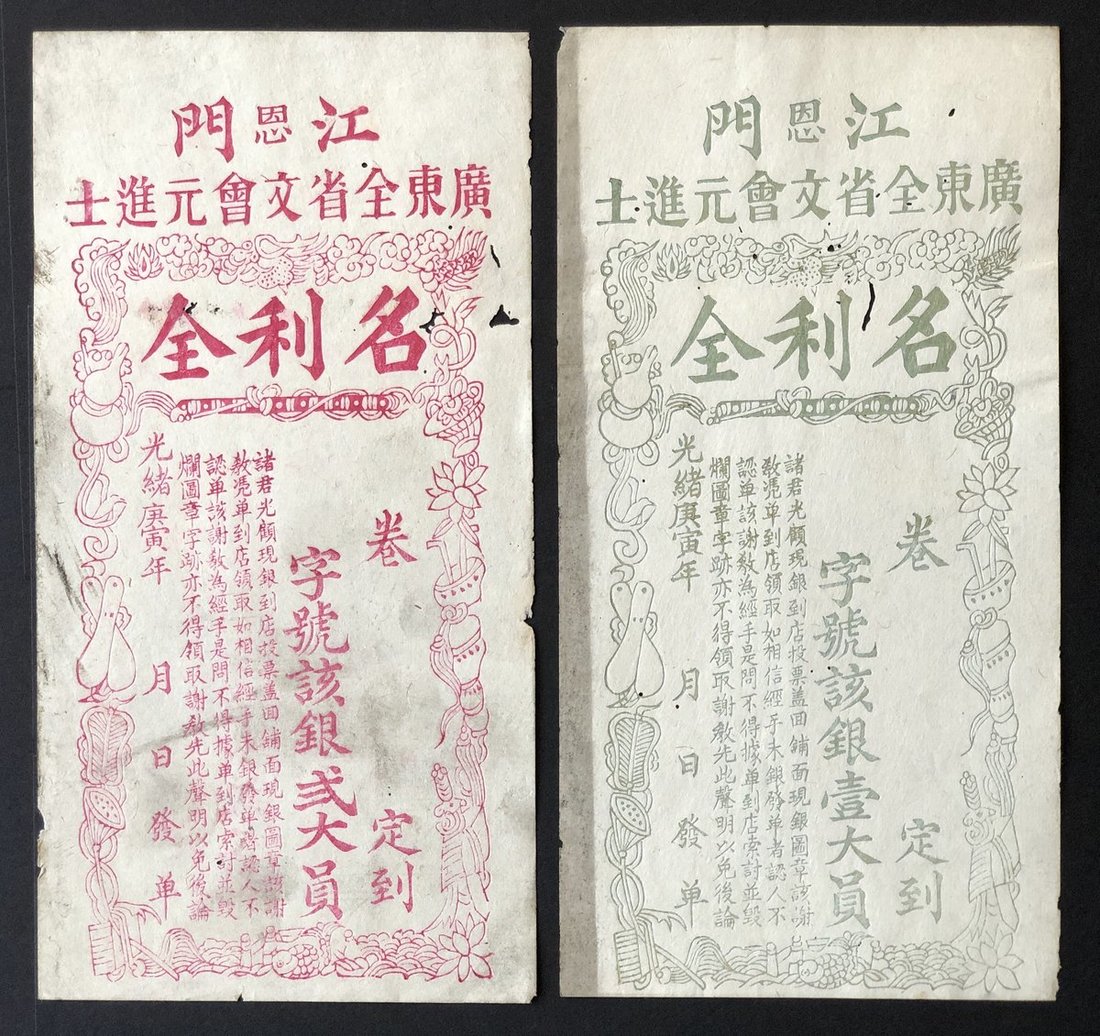 江恩門
廣東全省文會元進士
名利全
卷 定到
字號該銀弍大員
諸君光顧現銀到店投票盖回舖面現銀圖章該謝
教凴单到店領取如相信經手未銀發单者認人不
認单該謝教為經手是問不得據单到店索討並毀
爛圖章字跡亦不得領取謝教先此聲明以免後論
光緒庚寅年 月 日 發 单
江恩門
廣東全省文會元進士
名利全
卷 定到
字號該銀壹大員
諸君光顧現銀到店投票盖回舖面現銀圖章該謝
教凴单到店領取如相信經手未銀發单者認人不
認单該謝教為經手是問不得據单到店索討並毀
爛圖章字跡亦不得領取謝教先此聲明以免後論
光緒庚寅年 月 日 發 单